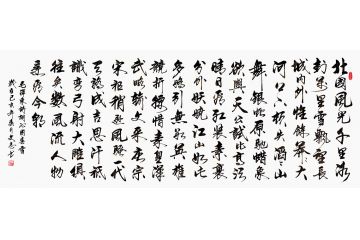 北國風光千里冰
封萬里雪飄望長
城內外惟餘莽莽大
河上下頓失滔滔山
舞銀蛇原馳蠟象
欲與天公試比高須
晴日看紅裝素裹
分外妖嬈江山如此
多嬌引無數英雄
競折腰惜秦皇漢
武略輸文采唐宗
宋祖稍遜風騷一代
天驕成吉思汗祇
識彎弓射大雕俱
往矣數風流人物
還看今朝
毛澤東詞沁園春雪